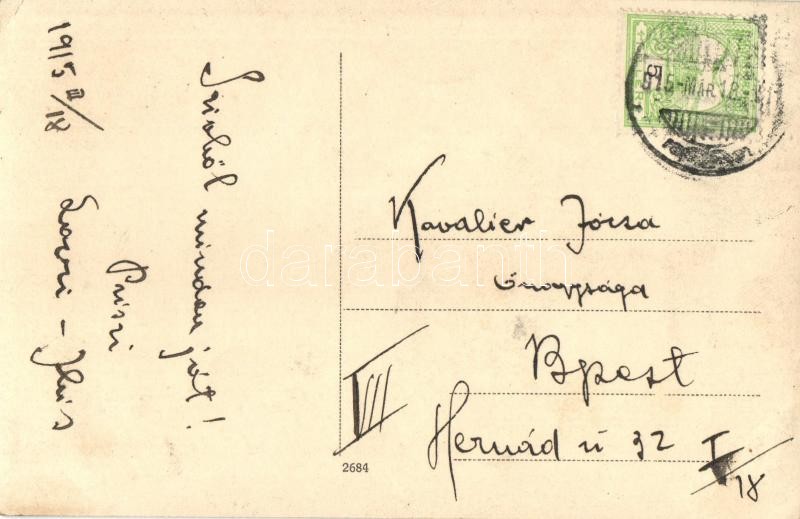 1915 III/18
Szívből minden jót!
Priszi
Kavalier Józsa
Őnagysága
Bpest
VII
Hernád u 32 I
18
2684
5
915-MAR.18
darabanth